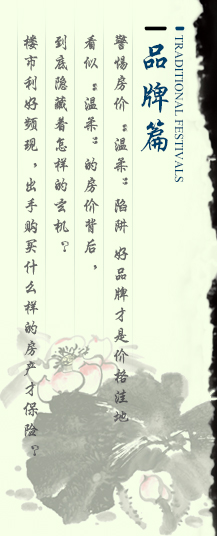 TRADITIONAL FESTIVALS
品牌篇
警惕房价“温柔”陷阱 好品牌才是价格洼地
看似“温柔”的房价背后，
到底隐藏着怎样的玄机？
楼市利好频现，出手购买什么样的房产才保险？